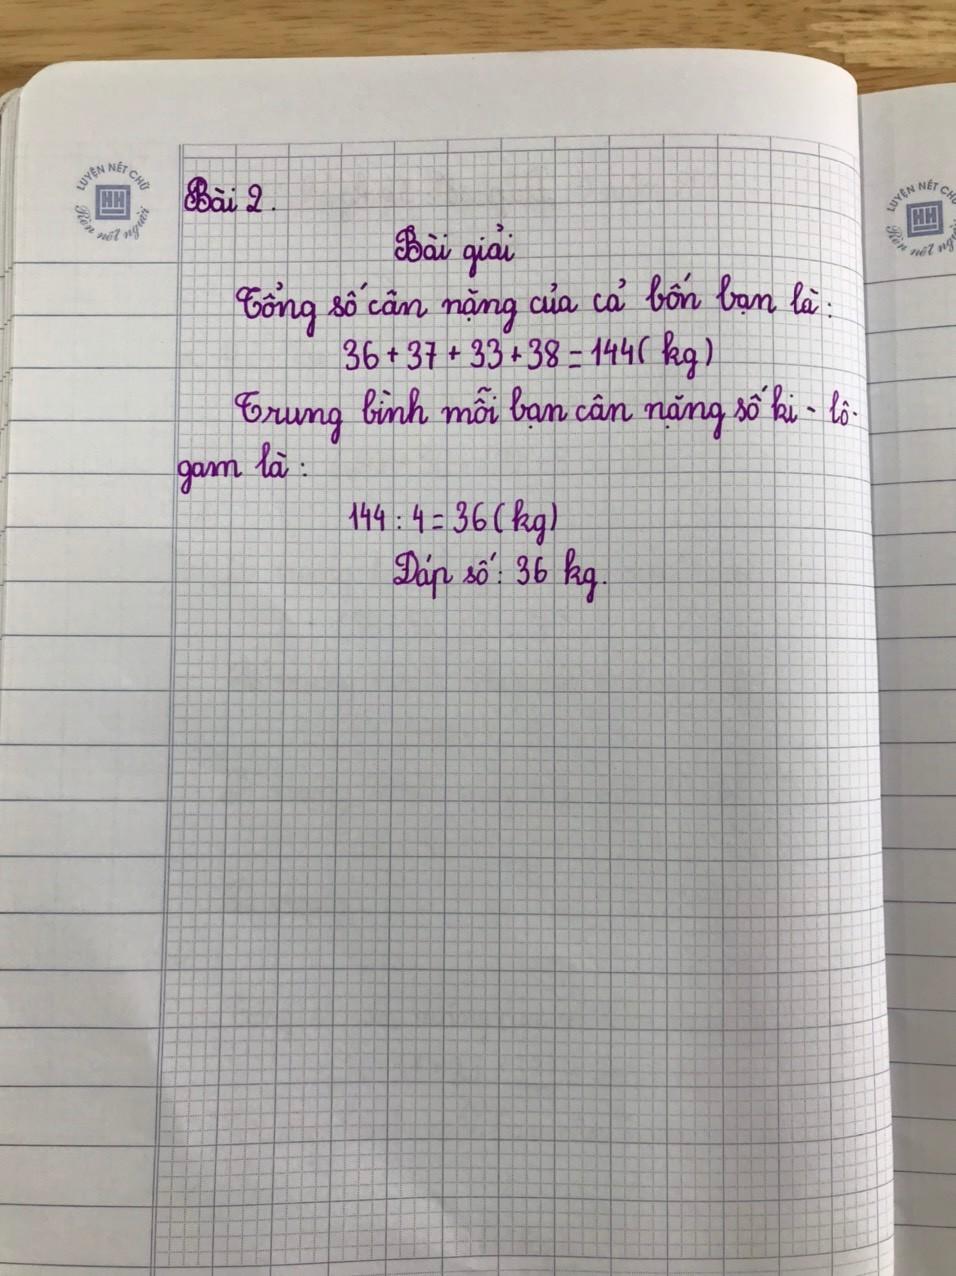 LUYỆN NÉT CHỮ
HH
Rèn nết người
Bài 2.
Bài giải
Tổng số cân nặng của cả bốn bạn là:
36 + 37 + 33 + 38 = 144( kg)
Trung bình mỗi bạn cân nặng số ki - lô-
gam là :
144 : 4 = 36 ( kg)
Đáp số: 36 kg.
LUYỆN NÉT CHỮ
HH
Rèn nết người